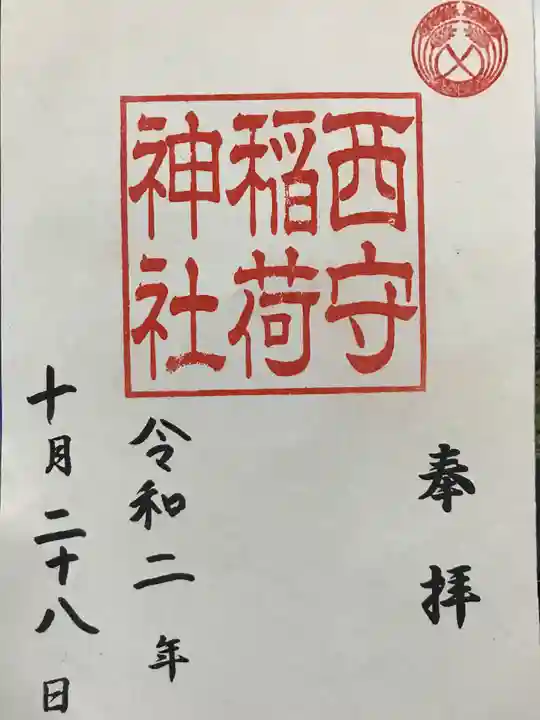 西守
稲荷
神社
奉拝
令和二年
十月二十八日